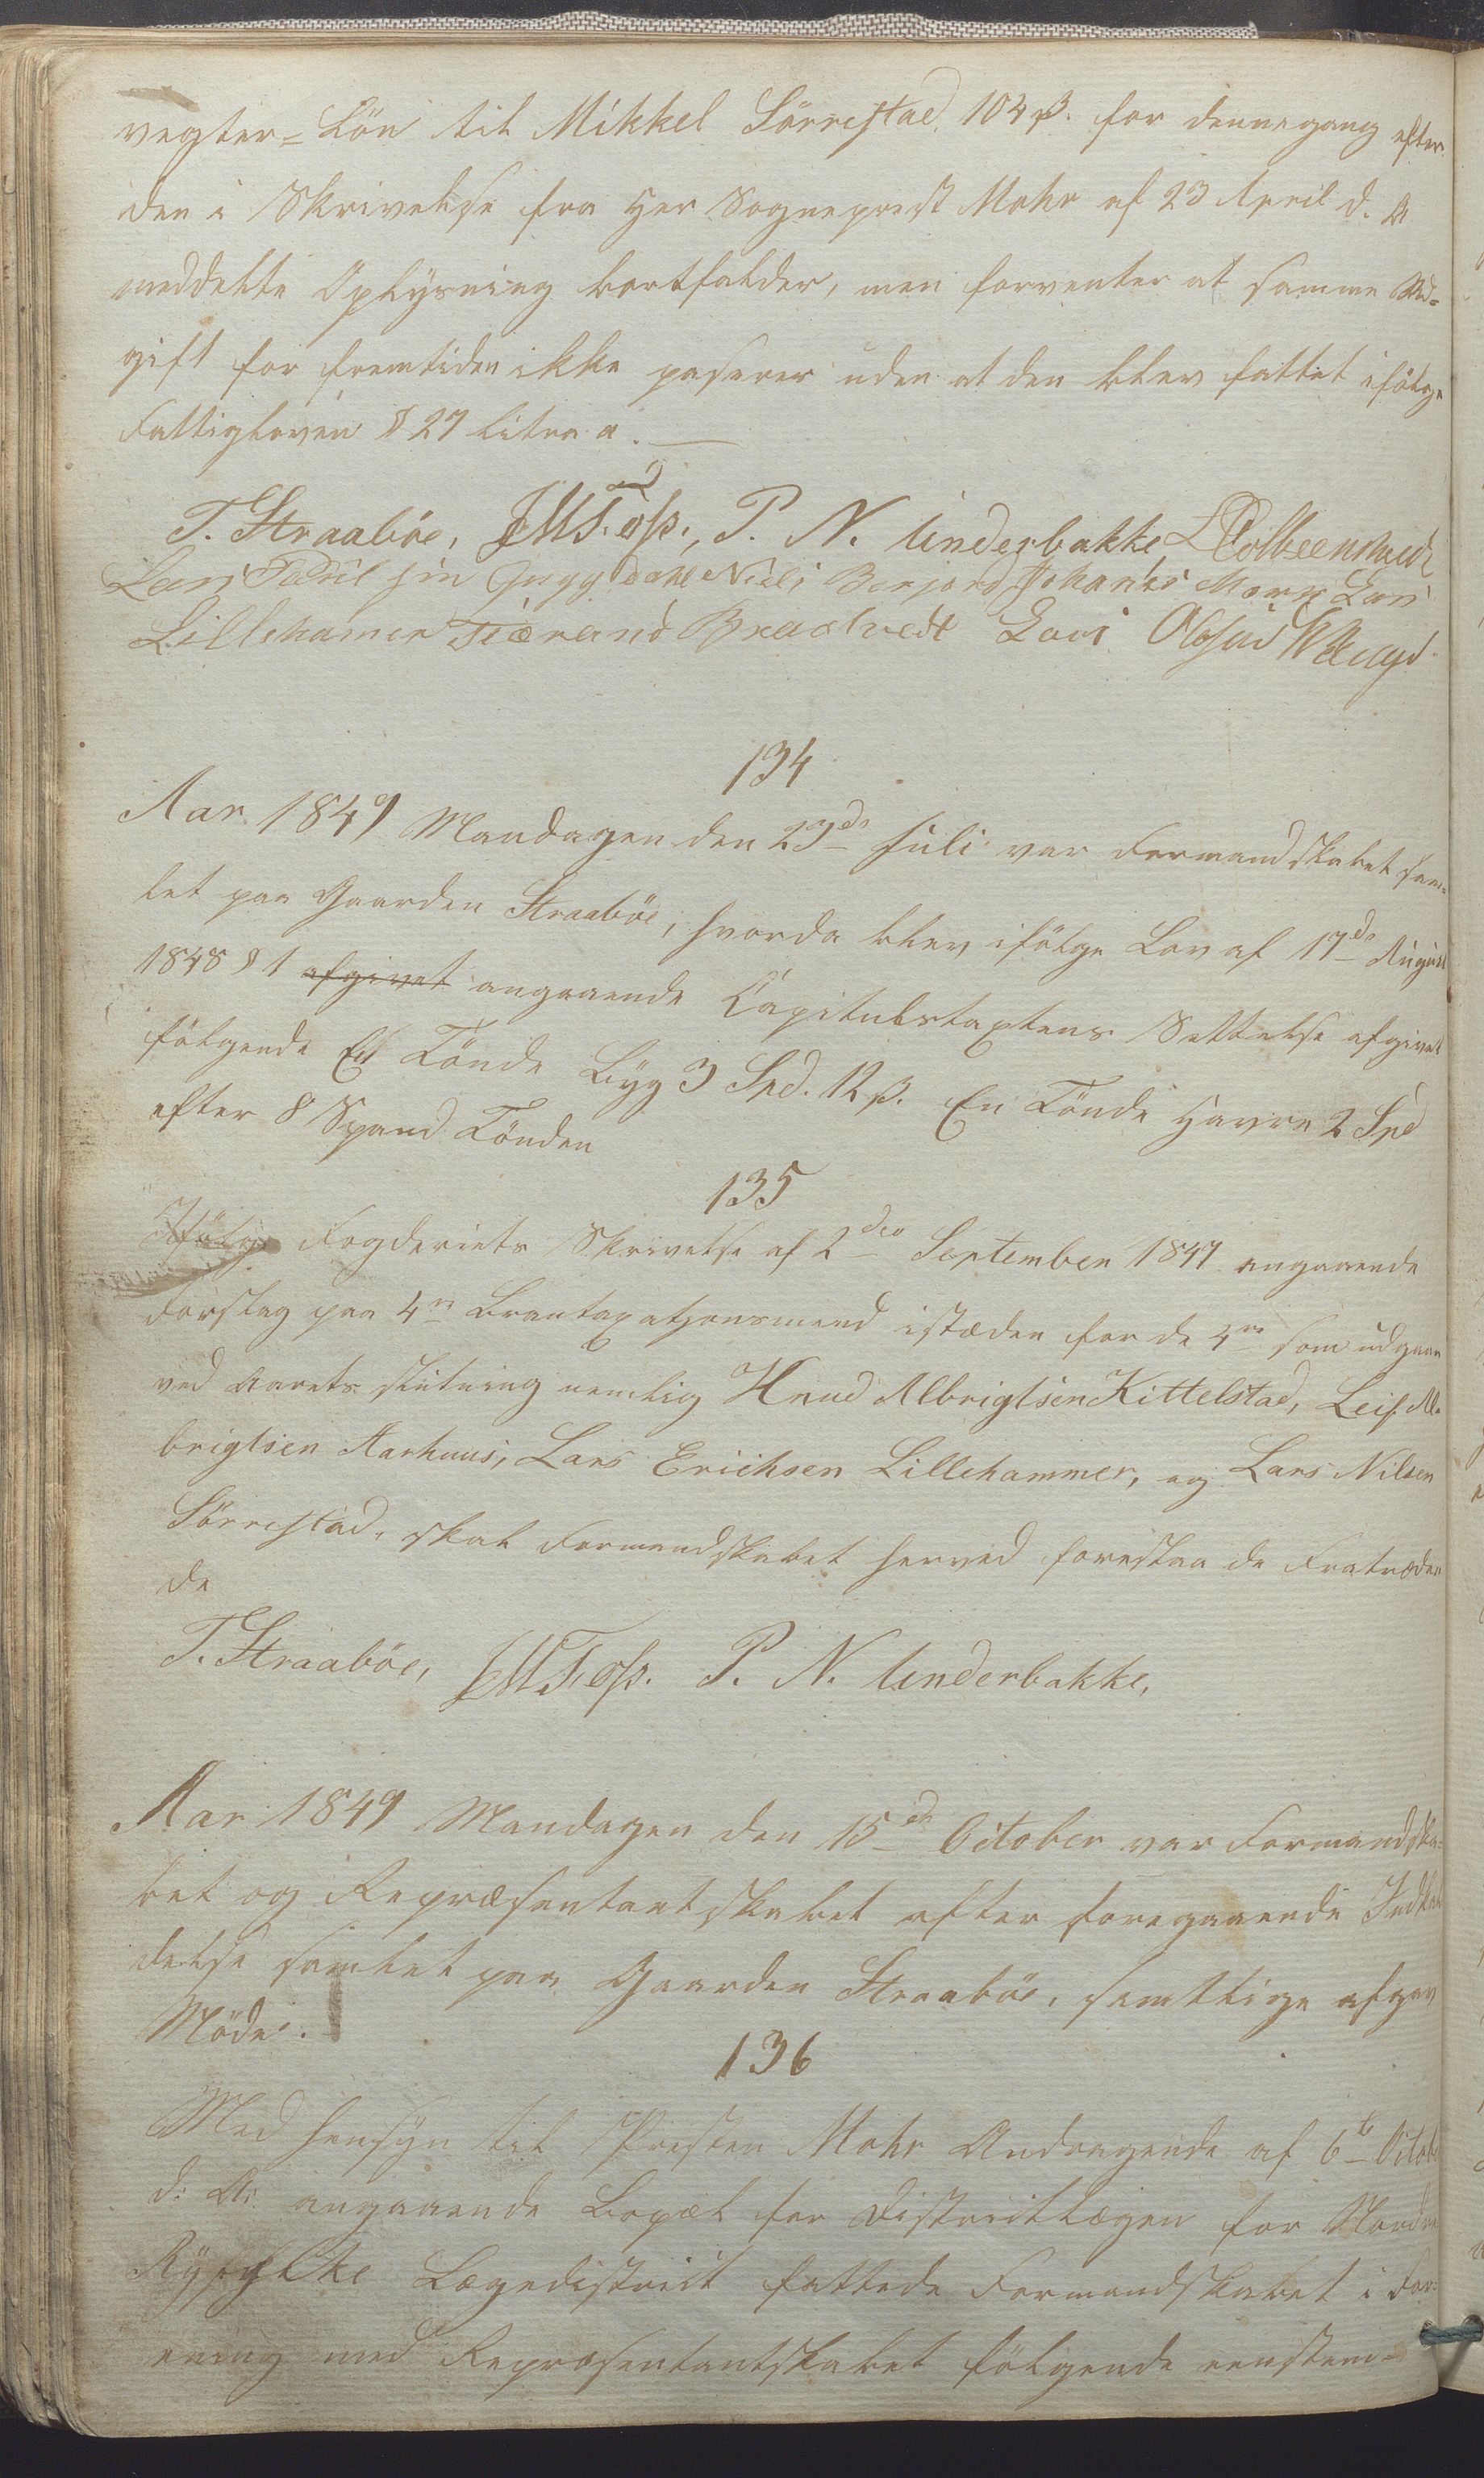 vegter=Lön til Mikkel Sörrestad 104 ß. for dennegang efter
den i Skrivelse fra Her Sogneprest Mohr af 23 April d. A
meddelte Oplysning bortfalder, men forventer at samme Ud-
gift for fremtiden ikke paserer uden at den blev fattet ifölge
Fattigloven § 27 litra a.
T. Straaböe, P. N. Underbakke, L Colbeenstvedt
Lars Johanes Mørk Lars
Lillehamer Tieerand Bradtvedt Lars
134
Aar 1849 Mandagen den 23de Juli var Formandskabet sam-
let paa Gaarden Straaböe, hvorda blev ifölge Lov af 17de August
1848 § 1 afgivet angaaende Capitulstaxtens Settelse afgivet
fölgende En Tönde Byg 3 Spd. 12 ß. En Tönde Havre 2 Spd
efter 8 Spand Tönden
135
Ifölge Fogderiets Skrivelse af 2den September 1847 angaaende
Forslag paa 4re Brantaxatjonsmend istæden for de 4re som udgaar
ved Aarets slutning nemlig Knud Albrigtsen Kittelstad, Leif Al-
brigtsen Aarhuus, Lars Erichsen Lillehammer, og Lars Nilsen
Sörrestad, skal Formandskabet herved foreslaa de Fratræden
de
T. Straaböe, P. N. Underbakke,
Aar 1849 Mandagen den 15de October var Formandska-
bet og Repræsentantskabet efter foregaaende Indkal
delse samlet paa Gaarden Straaböe, samtlige afgav
Möde.
136
Med hensyn til Presten Mohr Andragende af 6te Octob
d: A: angaaende Bopæl for Districtlægen for Nordre
Ryfylke Lægedistrict fattede Formandskabet i For-
ening med Repræsentantskabet fölgende eenstem-